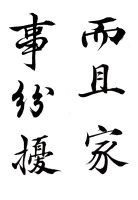 而且家
事紛擾